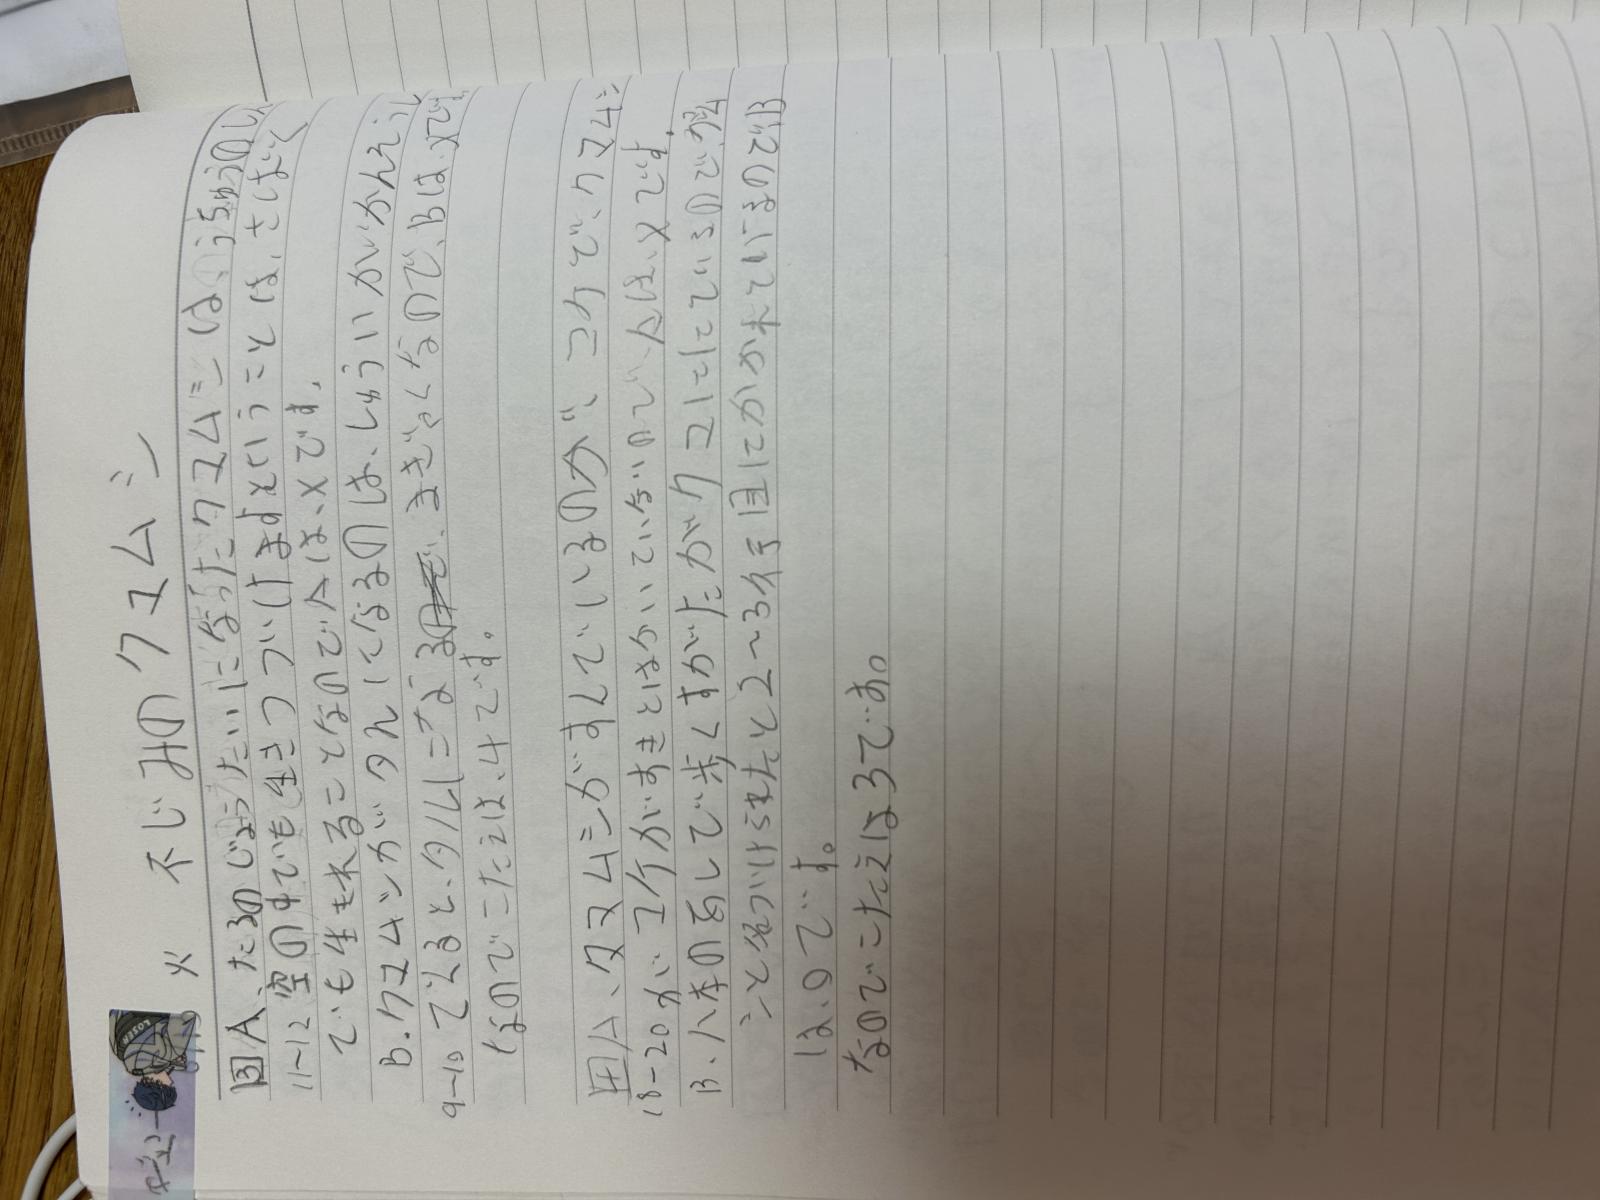 火 ネじみのクマムシ
3 A、たるのじょうたいになったクマムシは、うちゅうのしん
11~12 空の中でも生きつづけますということは、さばく
でも生きれることなのでAは、×です。
B.クマムシがタルになるのは、しゅういがかんそうし
9-10 てくると、タルになるので、まぎゃくなので、Bは、×です
なのでこたえは、4です。
4 A、クマムシがすんでいるのが、コケで、クマムシ
18-20が、コケがすきとはかいていないので、Aは、×です。
B、八本の足しで歩くすがたがクマににているので、クマム
シと名づけられたと2~3行目にかかれていますのでB
は、〇です。
なのでこたえは3です。
LOSER